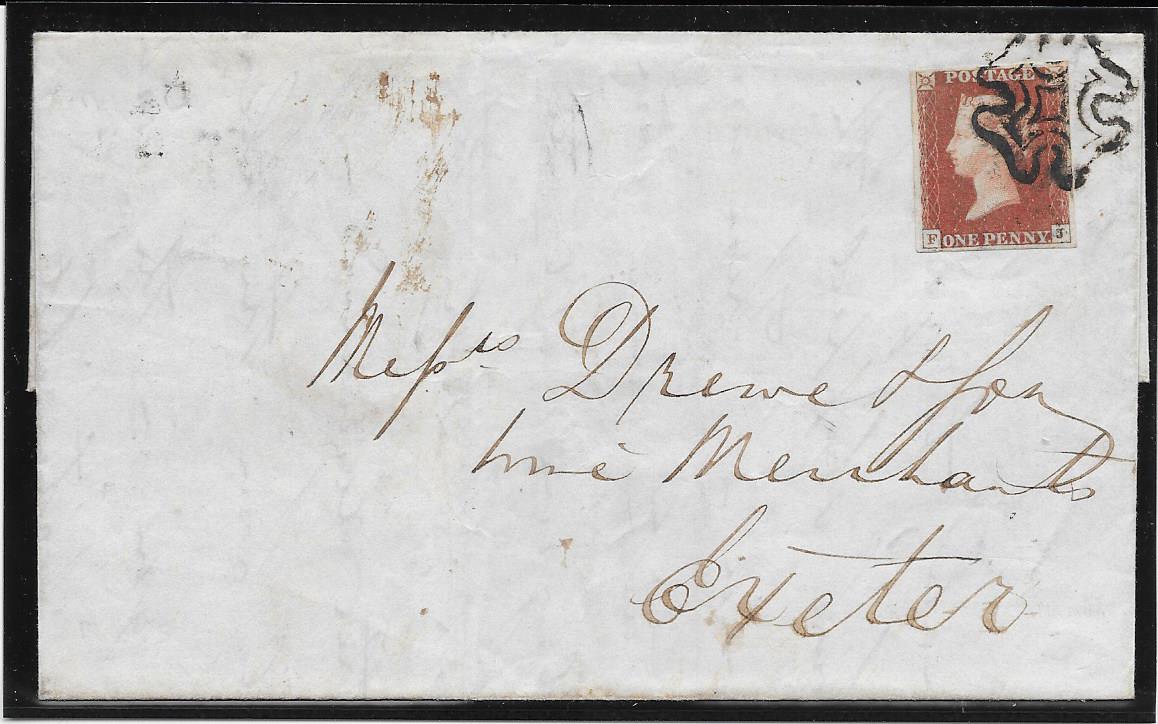 POSTAGE
F ONE PENNY J
Messrs Drewe & Son
Wine Merchants
Exeter